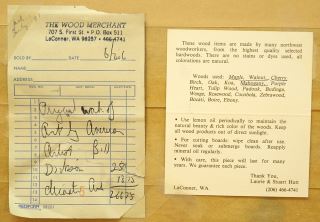 THE WOOD MERCHANT
707 S. First St. • P.O. Box 511
LaConner, WA 98257 • 466-4741
SOLD BY
DATE
NAME
ADDRESS
work of
Art by American
Artist Bill
25%
266.25
These wood items are made by many northwest
woodworkers, from the highest quality selected
hardwoods. There are no stains or dyes used, all
colorations are natural.
Woods used: Maple, Walnut, Cherry
Birch, Oak, Koa, Mahogany, Purple
Heart, Tulip Wood, Padouk, Bubinga,
Wenge, Rosewood, Cocobolo, Zebrawood,
Bocoti, Boire, Ebony.
• Use lemon oil periodically to maintain the
natural beauty & rich color of the woods. Keep
all wood products out of direct sunlight.
• For cutting boards: wipe clean after use.
Never soak or submerge boards. Reapply
mineral oil regularly.
• With care, this piece will last for many
years. We guarantee it.
Thank You,
Laurie & Stuart Hutt
LaConner, WA. (206) 466-4741